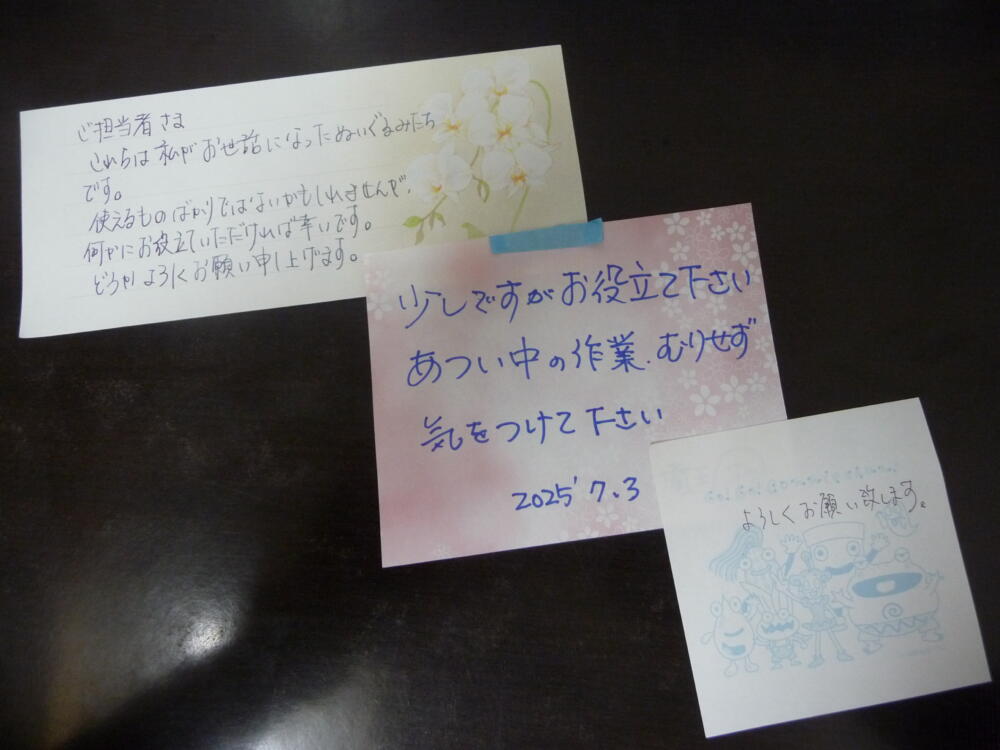 ご担当者さま
これらは私がお世話になったぬいぐるみたち
です。
使えるものばかりではないかもしれませんが、
何かにお役立ていただければ幸いです。
どうかよろしくお願い申し上げます。
少しですがお役立て下さい
あつい中の作業、むりせず
気をつけて下さい
2025' 7.3
よろしくお願い致します。